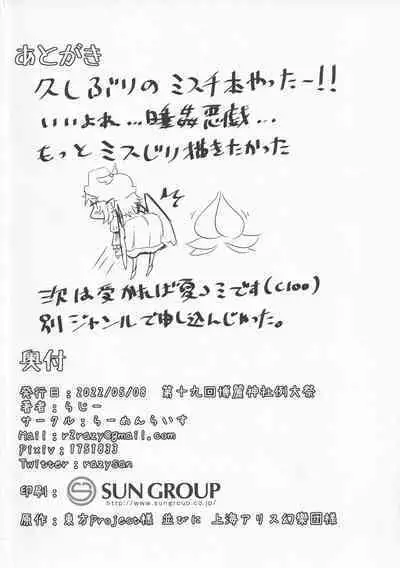 あとがき
久しぶりの ミスチ本やったー!!
いいよね…睡姦悪戯…
もっと ミスじり描きたかった
次は受かれば夏コミです(C100)
別ジャンルで申し込んじゃった。
奥付
発行日:2022/05/08 第十九回博麗神社例大祭
著者:らじー
サークル:らーめんらいす
Mail:r2razy@gmail.com
Pixiv:1751833
Twitter:razysan
印刷: SUN GROUP
http://www.sungroup.co.jp/
原作:東方Project様 並びに 上海アリス幻樂団様